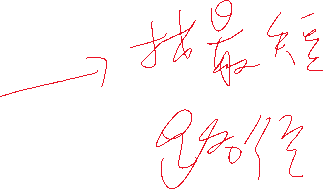 找最短
路径